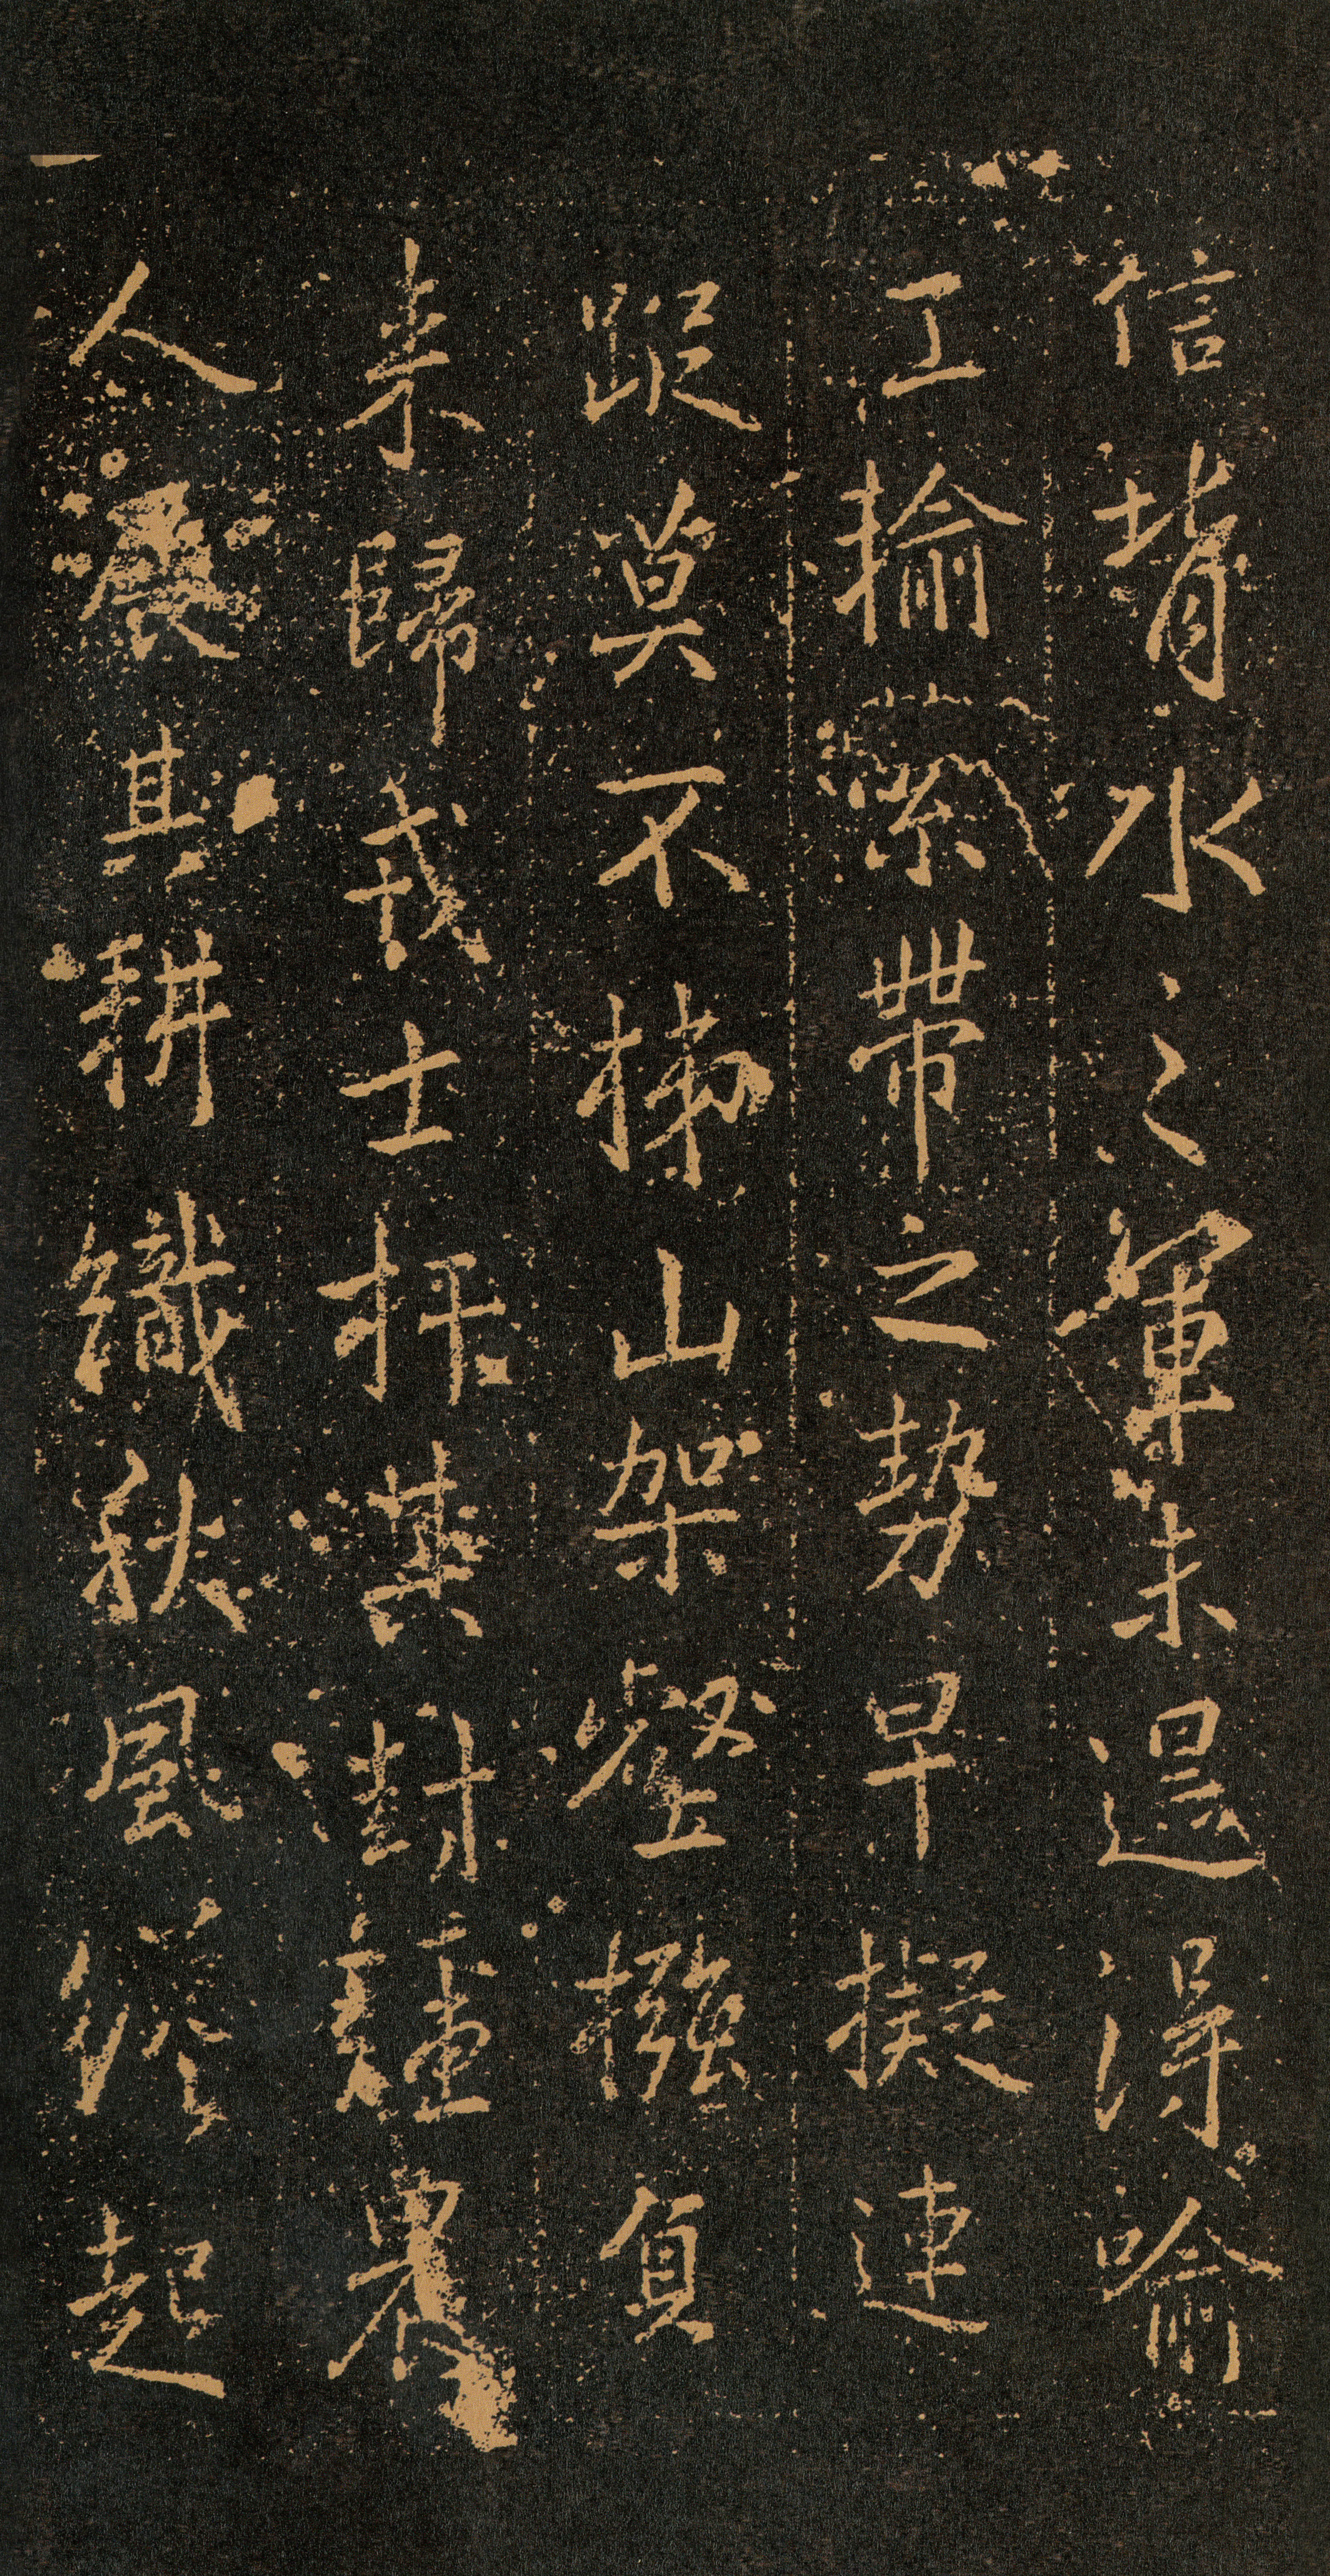 信背水之軍未還得喻
工揄縈帶之勢早擬連
莫不梯山架壑襁負
來歸戎士其封疆農
人展其耕織秋風俗起